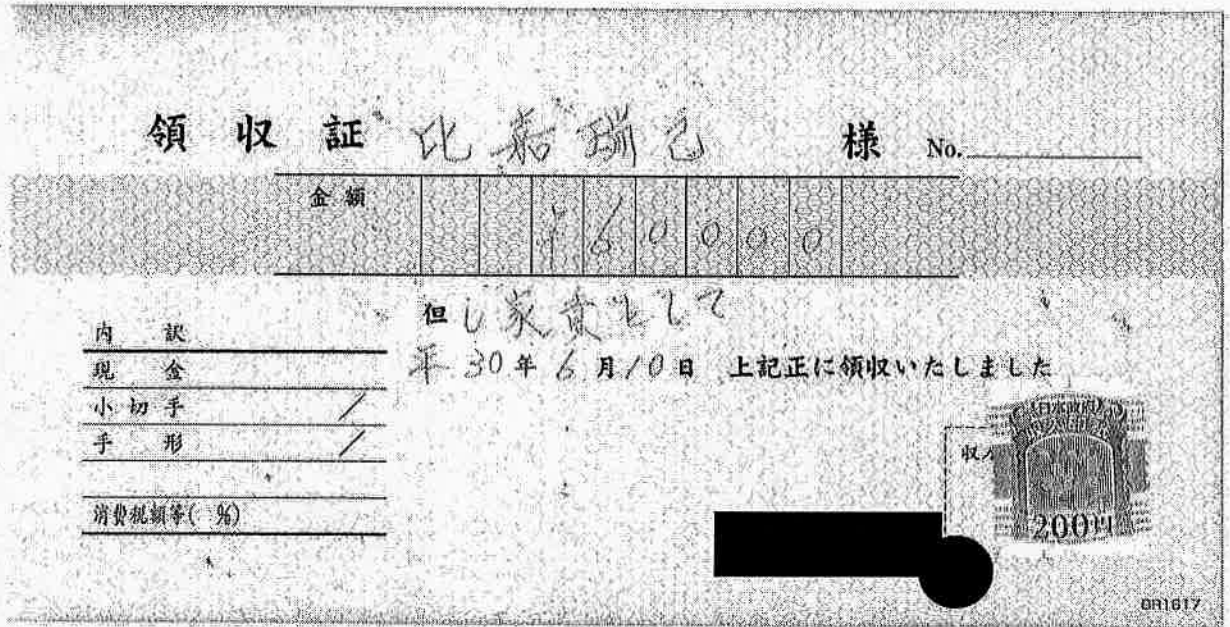 領収証 比嘉瑞己 様 No.
金額 ¥60000
但し家賃として
平30年6月10日 上記正に領収いたしました
内訳
現金
小切手 /
手形 /
消費税額等( %)
日本政府
収入印紙
200円
収入